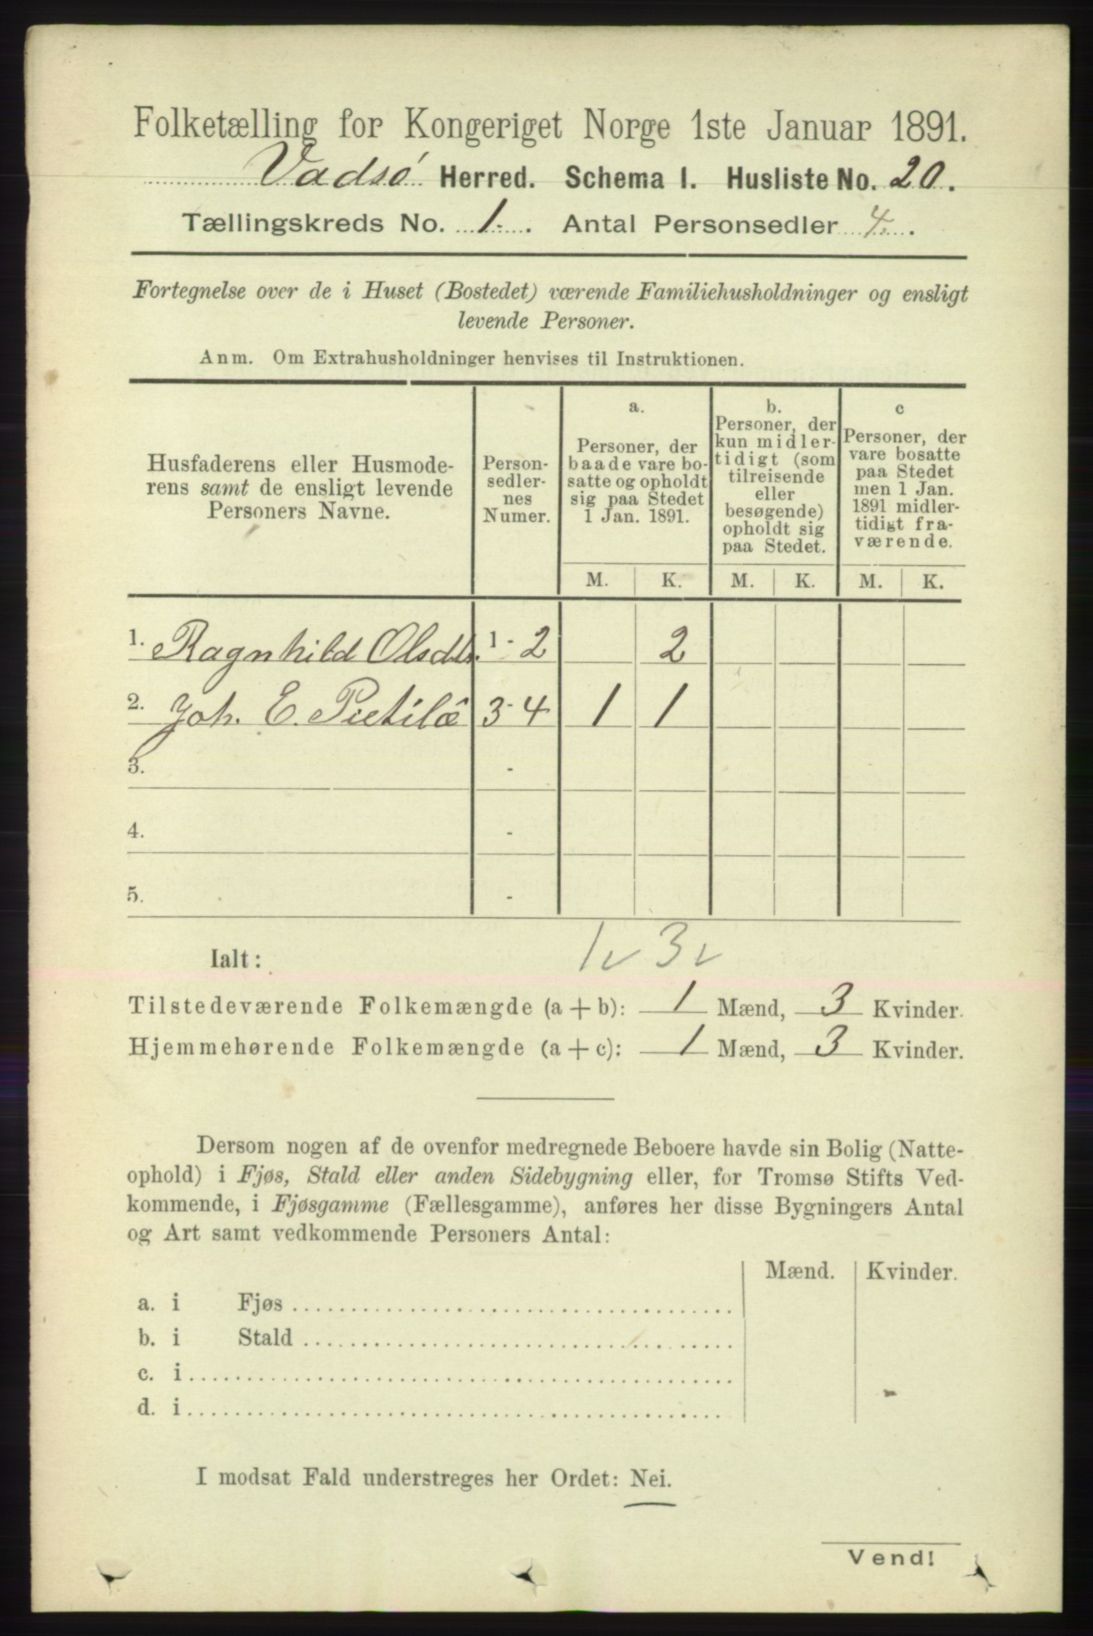 Folketælling for Kongeriget Norge 1ste Januar 1891.
Vadsø Herred. Schema I. Husliste No. 20.
Tællingskreds No. 1. Antal Personsedler 4.
Fortegnelse over de i Huset (Bostedet) værende Familiehusholdninger og ensligt
levende Personer.
Anm. Om Extrahusholdninger henvises til Instruktionen.
Husfaderens eller Husmode-
rens samt de ensligt levende
Personers Navne.
Person-
sedler-
nes
Numer.
a.
Personer, der
baade vare bo-
satte og opholdt
sig paa Stedet
1 Jan. 1891.
b.
Personer, der
kun midler-
tidigt (som
tilreisende
eller
besøgende)
opholdt sig
paa Stedet.
c
Personer, der
vare bosatte
paa Stedet
men 1 Jan.
1891 midler-
tidigt fra-
værende.
M. K. M. K. M. K.
1. Ragnhild Olsdtr. 1-2 2
2. Joh. E. Pietilæ 3-4 1 1
3. -
4. -
5. -
Ialt: 1 3
Tilstedeværende Folkemængde (a + b): 1 Mænd, 3 Kvinder.
Hjemmehørende Folkemængde (a + c): 1 Mænd, 3 Kvinder.
Dersom nogen af de ovenfor medregnede Beboere havde sin Bolig (Natte-
ophold) i Fjøs, Stald eller anden Sidebygning eller, for Tromsø Stifts Ved-
kommende, i Fjøsgamme (Fællesgamme), anføres her disse Bygningers Antal
og Art samt vedkommende Personers Antal:
Mænd. Kvinder.
a. i Fjøs
b. i Stald
c. i
d. i
I modsat Fald understreges her Ordet: Nei.
Vend!